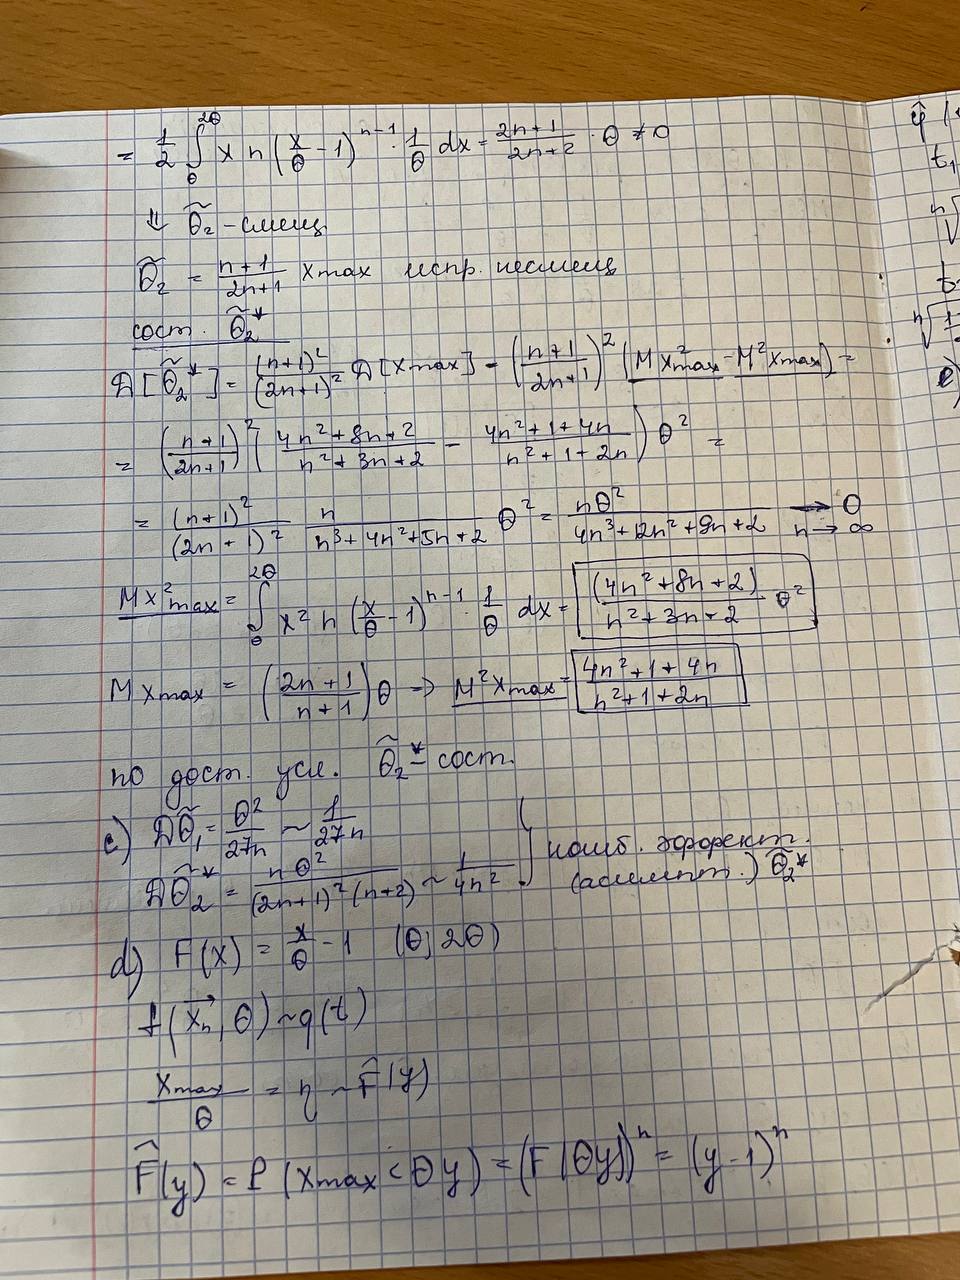 = 1/2 ∫_θ^{2θ} x n (x/θ - 1)^{n-1} · 1/θ dx = (2n+1)/(2n+2) · θ ≠ θ
⇓ θ̃₂ - смещ
θ̃₂ = (n+1)/(2n+1) x max испр. несмещ
сост. θ̃₂*
D[θ̃₂*] = (n+1)²/(2n+1)² D[xmax] = ((n+1)/(2n+1))² (M x²max - M² xmax) =
= ((n+1)/(2n+1))² ((4n²+8n+2)/(n²+3n+2) - (4n²+1+4n)/(n²+1+2n)) θ² =
= (n+1)²/(2n+1)² n/(n³+4n²+5n+2) θ² = nθ²/(4n³+12n²+9n+2) → 0 n→∞
M x²max = ∫_θ^{2θ} x² n (x/θ - 1)^{n-1} · 1/θ dx = (4n²+8n+2)/(n²+3n+2) θ²
M xmax = ((2n+1)/(n+1)) θ → M² xmax = (4n²+1+4n)/(n²+1+2n)
по дост. усл. θ̃₂* - сост.
c) Dθ̃₁ = θ²/27n ~ 1/27n
Dθ̃₂* = nθ²/((2n+1)²(n+2)) ~ 1/4n² } наиб. эффект. (асимпт.) θ̃₂*
d) F(x) = x/θ - 1 (θ; 2θ)
f(x⃗n, θ) ~ g(t)
xmax/θ = η ~ F̂(y)
F̂(y) = P(xmax < θy) = (F(θy))ⁿ = (y-1)ⁿ
φ̂
t₁
n√
t₂
n√
e)